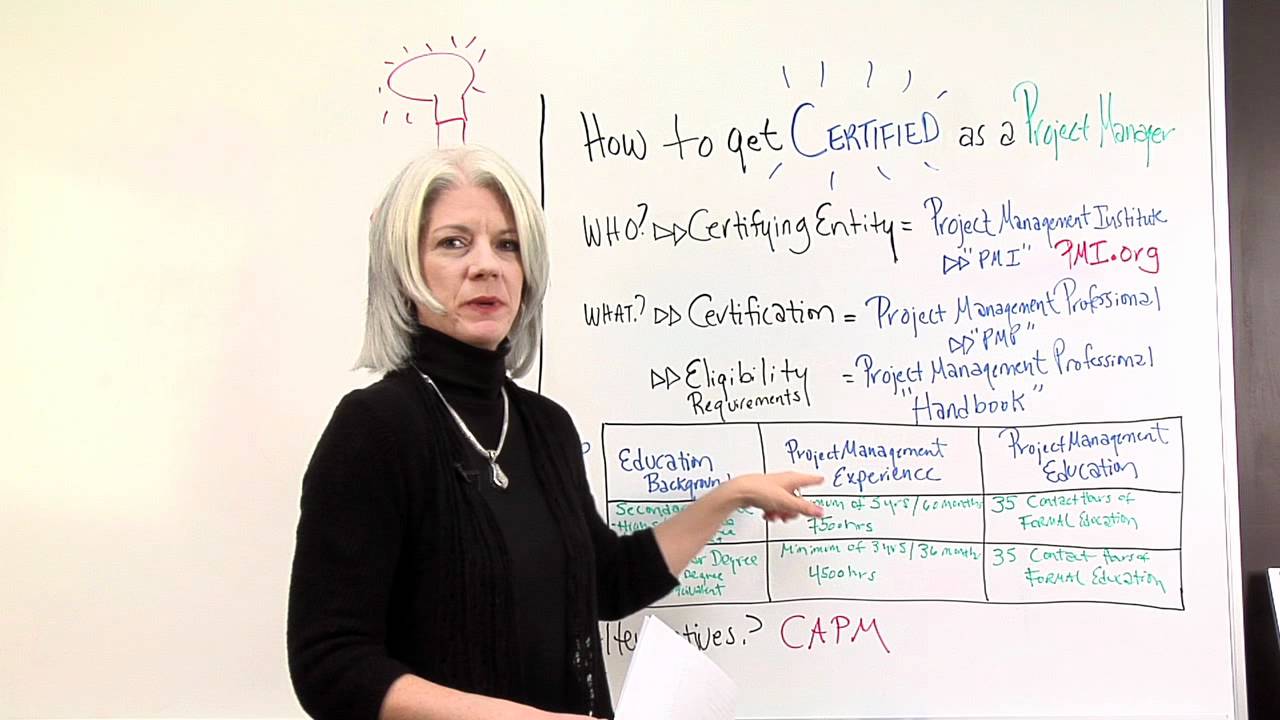 How to get CERTIFIED as a Project Manager
WHO? ▷▷ Certifying Entity = Project Management Institute
▷▷ "PMI" PMI.org
WHAT? ▷▷ Certification = Project Management Professional
▷▷ "PMP"
▷▷ Eligibility Requirements = Project Management Professional
"Handbook"
Education Background
Project Management Experience
Project Management Education
of 5 yrs/60 months
7500hrs
35 Contact Hours of
FORMAL Education
Degree
Degree
Minimum of 3 yrs/36 month
4500hrs
35 Contact Hours of
FORMAL Education
CAPM